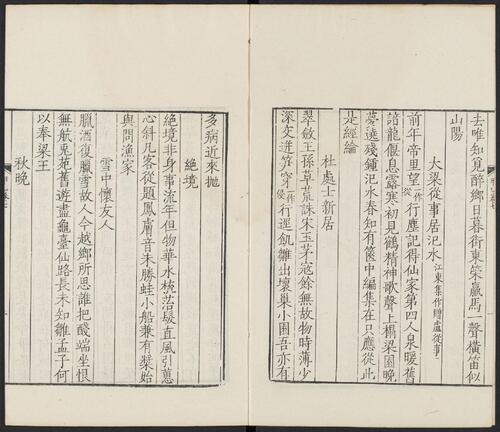 去唯知覓醉鄉日暮街東策羸馬一聲橫笛似
山陽
大梁從事居汜水 江東集作贈盧從事
前年帝里望一作行塵記得仙家第四人泉暖舊
諳龍偃息露寒初見鶴精神歌聲上榻梁園晚
夢遶殘鍾汜水春知有篋中編集在只應從此
是經綸
杜處士新居
翠斂王孫草荒誅宋玉茅寇餘無故物時薄少
深交迸笋穿一作侵行徑飢雛出壞巢小園吾亦有
多病近來拋
絕境
絕境非身事流年但物華水梳苔髮直風引蕙
心斜凡客從題鳳膚音未勝蛙小船兼有槳始
與問漁家
雪中懷友人
臘酒復臘雪故人今越鄉所思誰把醆端坐恨
無航兔苑舊遊盡龜臺仙路長未知雛孟子何
以奉梁王
秋晚